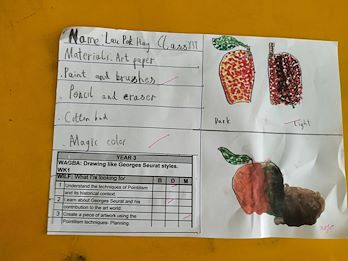 Name: Lau Pak Hay Class Y3T
Materials: Art paper
. Paint and brushes
. Pencil and eraser
. Cotten bud
. Magic color
Dark
Light
YEAR 3
WAGBA: Drawing like Georges Seurat styles.
WK1
WILF: What I'm looking for B D M
1 Understand the techniques of Pointillism
and its historical context.
2 Learn about Georges Seurat and his
contribution to the art world.
3 Create a piece of artwork using the
Pointillism techniques- Planning.